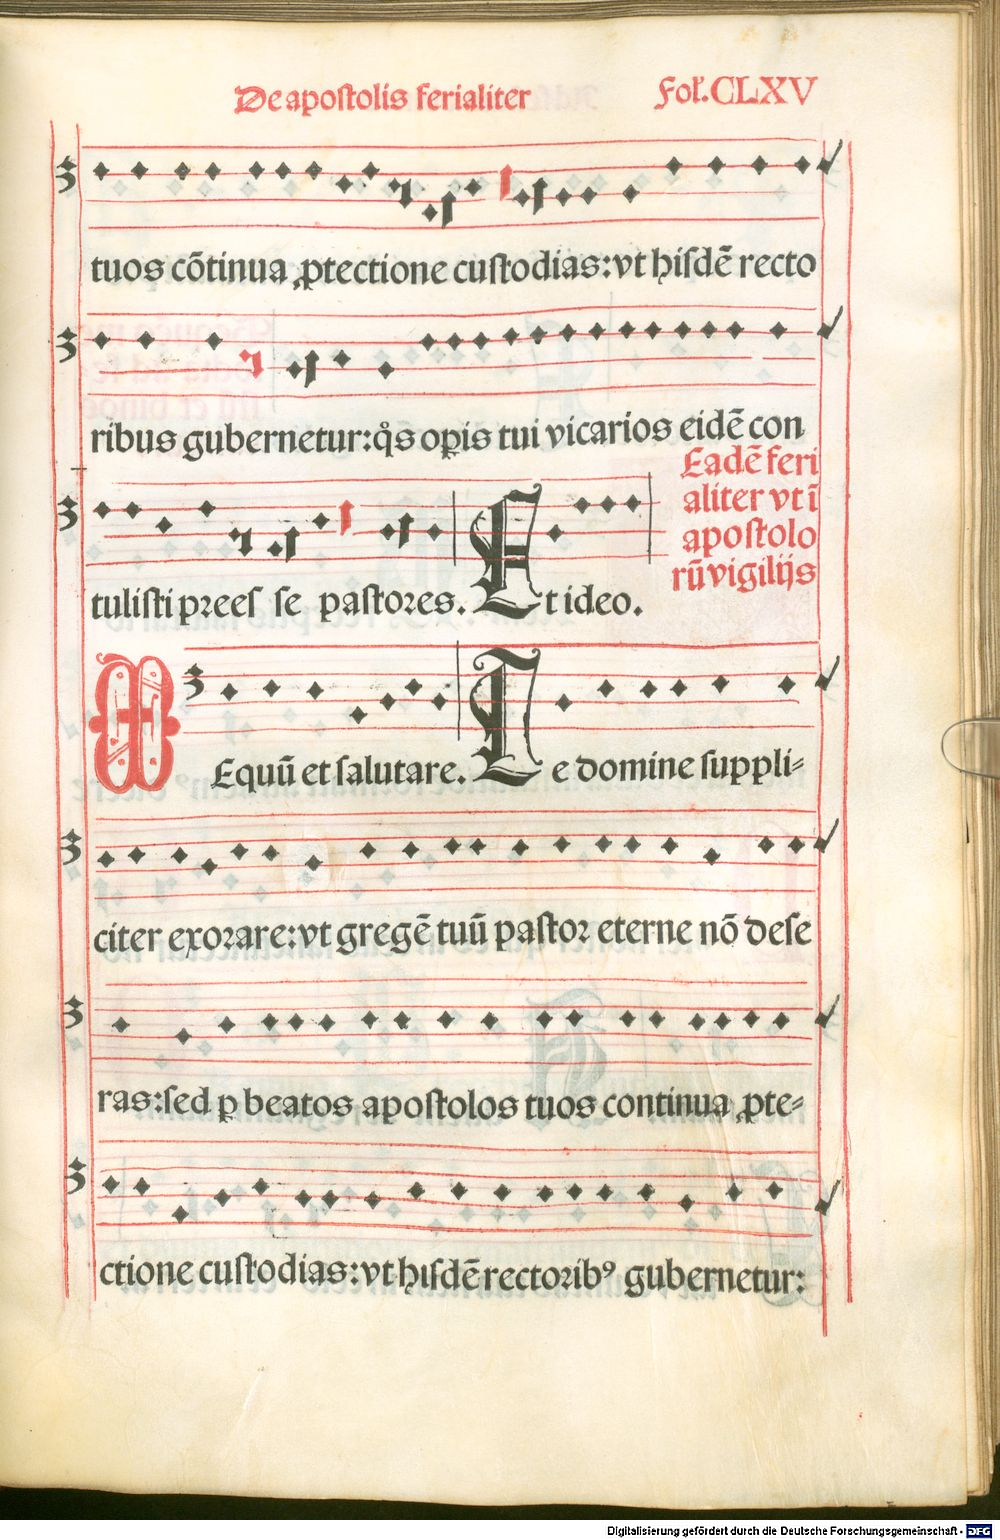 De apostolis ferialiter Fol. CLXV
tuos cōtinua ꝓtectione custodias: vt hisdē recto
ribus gubernetur: q̊s oꝑis tui vicarios eidē con
Eadē feri
aliter vt ī
apostolo
rū vigilijs
tulisti preeſ se pastores. Et ideo.
Equū et salutare. Te domine suppli-
citer exorare: vt gregē tuū pastor eterne nō dese
ras: sed ꝑ beatos apostolos tuos continua ꝓte-
ctione custodias: vt hisdē rectoribꝰ gubernetur:
Digitalisierung gefördert durch die Deutsche Forschungsgemeinschaft - DFG